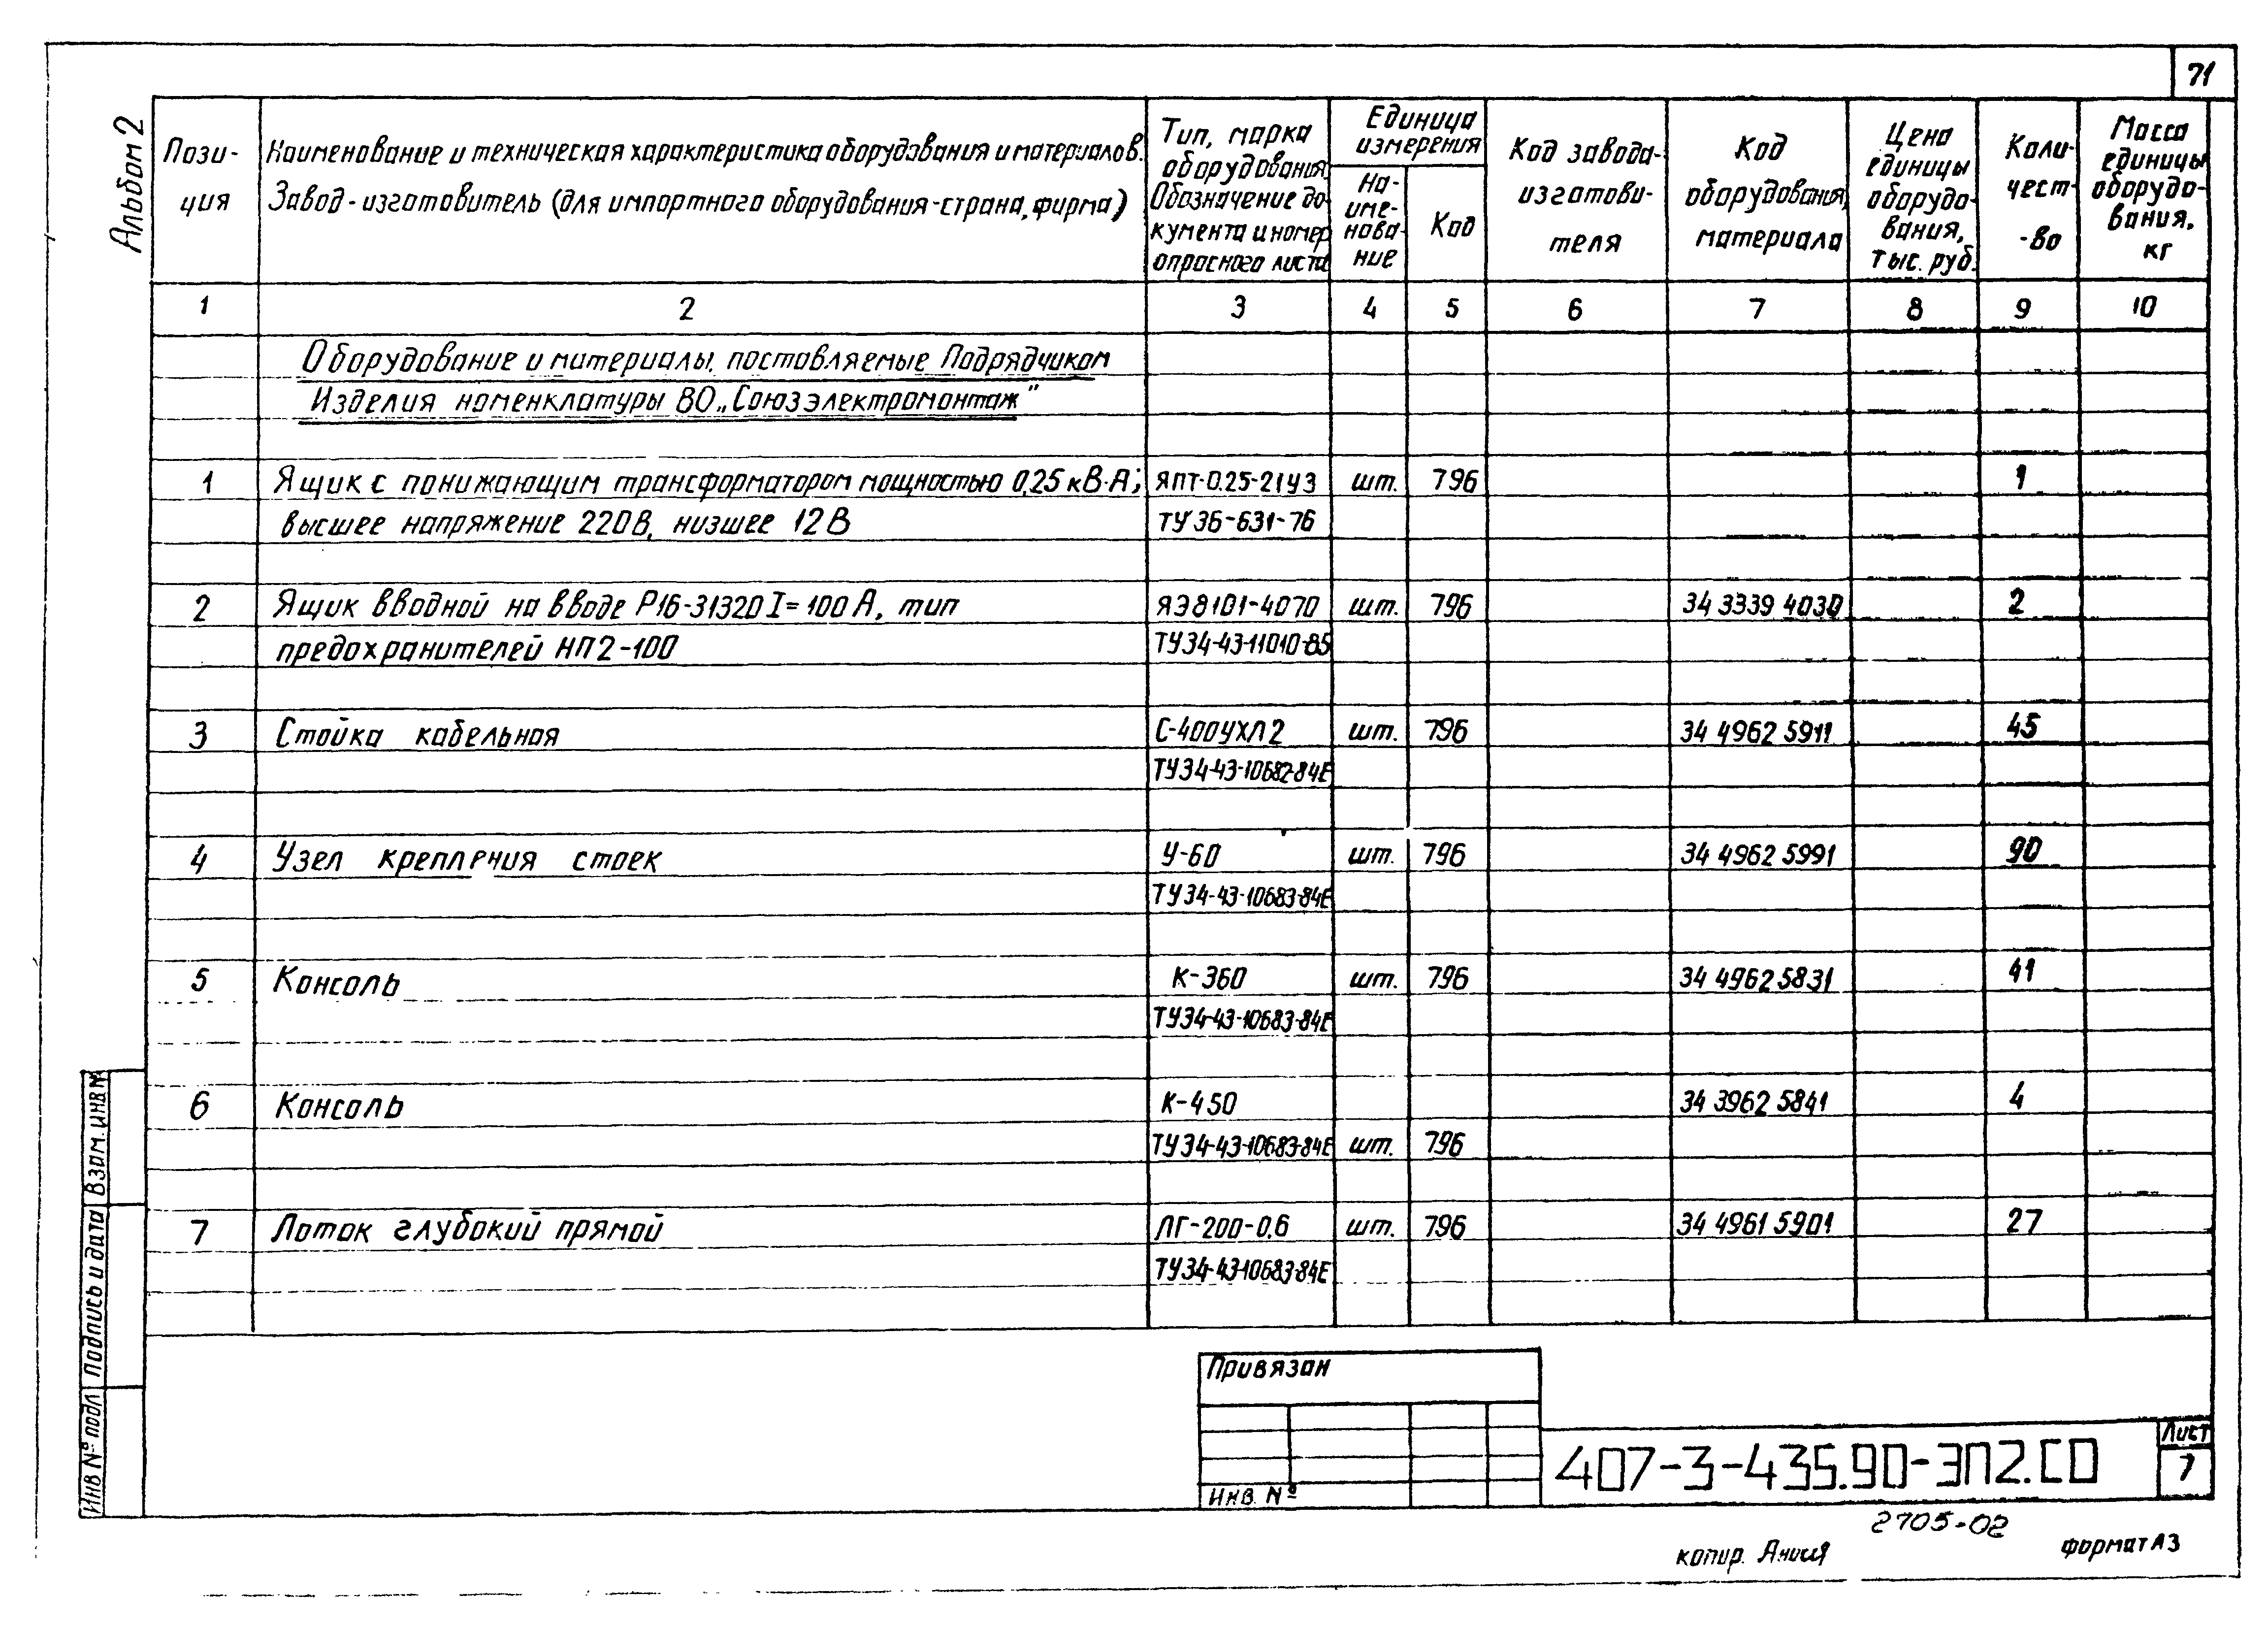 71
Альбом 2
Пози-
ция
Наименование и техническая характеристика оборудования и материалов.
Завод-изготовитель (для импортного оборудования-страна, фирма)
Тип, марка
оборудования.
Обозначение до-
кумента и номер
опросного листа
Единица
измерения
На-
име-
нова-
ние
Код
Код завода-
изготови-
теля
Код
оборудования,
материала
Цена
единицы
оборудо-
вания,
тыс. руб.
Коли-
чест-
-во
Масса
единицы
оборудо-
вания,
кг
1 2 3 4 5 6 7 8 9 10
Оборудование и материалы, поставляемые Подрядчиком
Изделия номенклатуры ВО „Союзэлектромонтаж"
1 Ящик с понижающим трансформатором мощностью 0,25 кВ·А; ЯПТ-0.25-21У3 шт. 796 1
высшее напряжение 220В, низшее 12В ТУ36-631-76
2 Ящик вводной на вводе Р16-31320 I=100А, тип ЯЭ8101-4070 шт. 796 34 3339 4030 2
предохранителей НП2-100 ТУ34-43-11010-85
3 Стойка кабельная С-400УХЛ2 шт. 796 34 4962 5911 45
ТУ34-43-10682-84Е
4 Узел крепления стоек У-60 шт. 796 34 4962 5991 90
ТУ34-43-10683-84Е
5 Консоль К-360 шт. 796 34 4962 5831 41
ТУ34-43-10683-84Е
6 Консоль К-450 34 3962 5841 4
ТУ34-43-10683-84Е шт. 796
7 Лоток глубокий прямой ЛГ-200-0.6 шт. 796 34 4961 5901 27
ТУ34-43-10683-84Е
Взам. инв №
Подпись и дата
Инв № подл
Привязан
Инв. №
407-3-435.90-ЭП2.СО
Лист
7
2705-02
копир.
формат А3